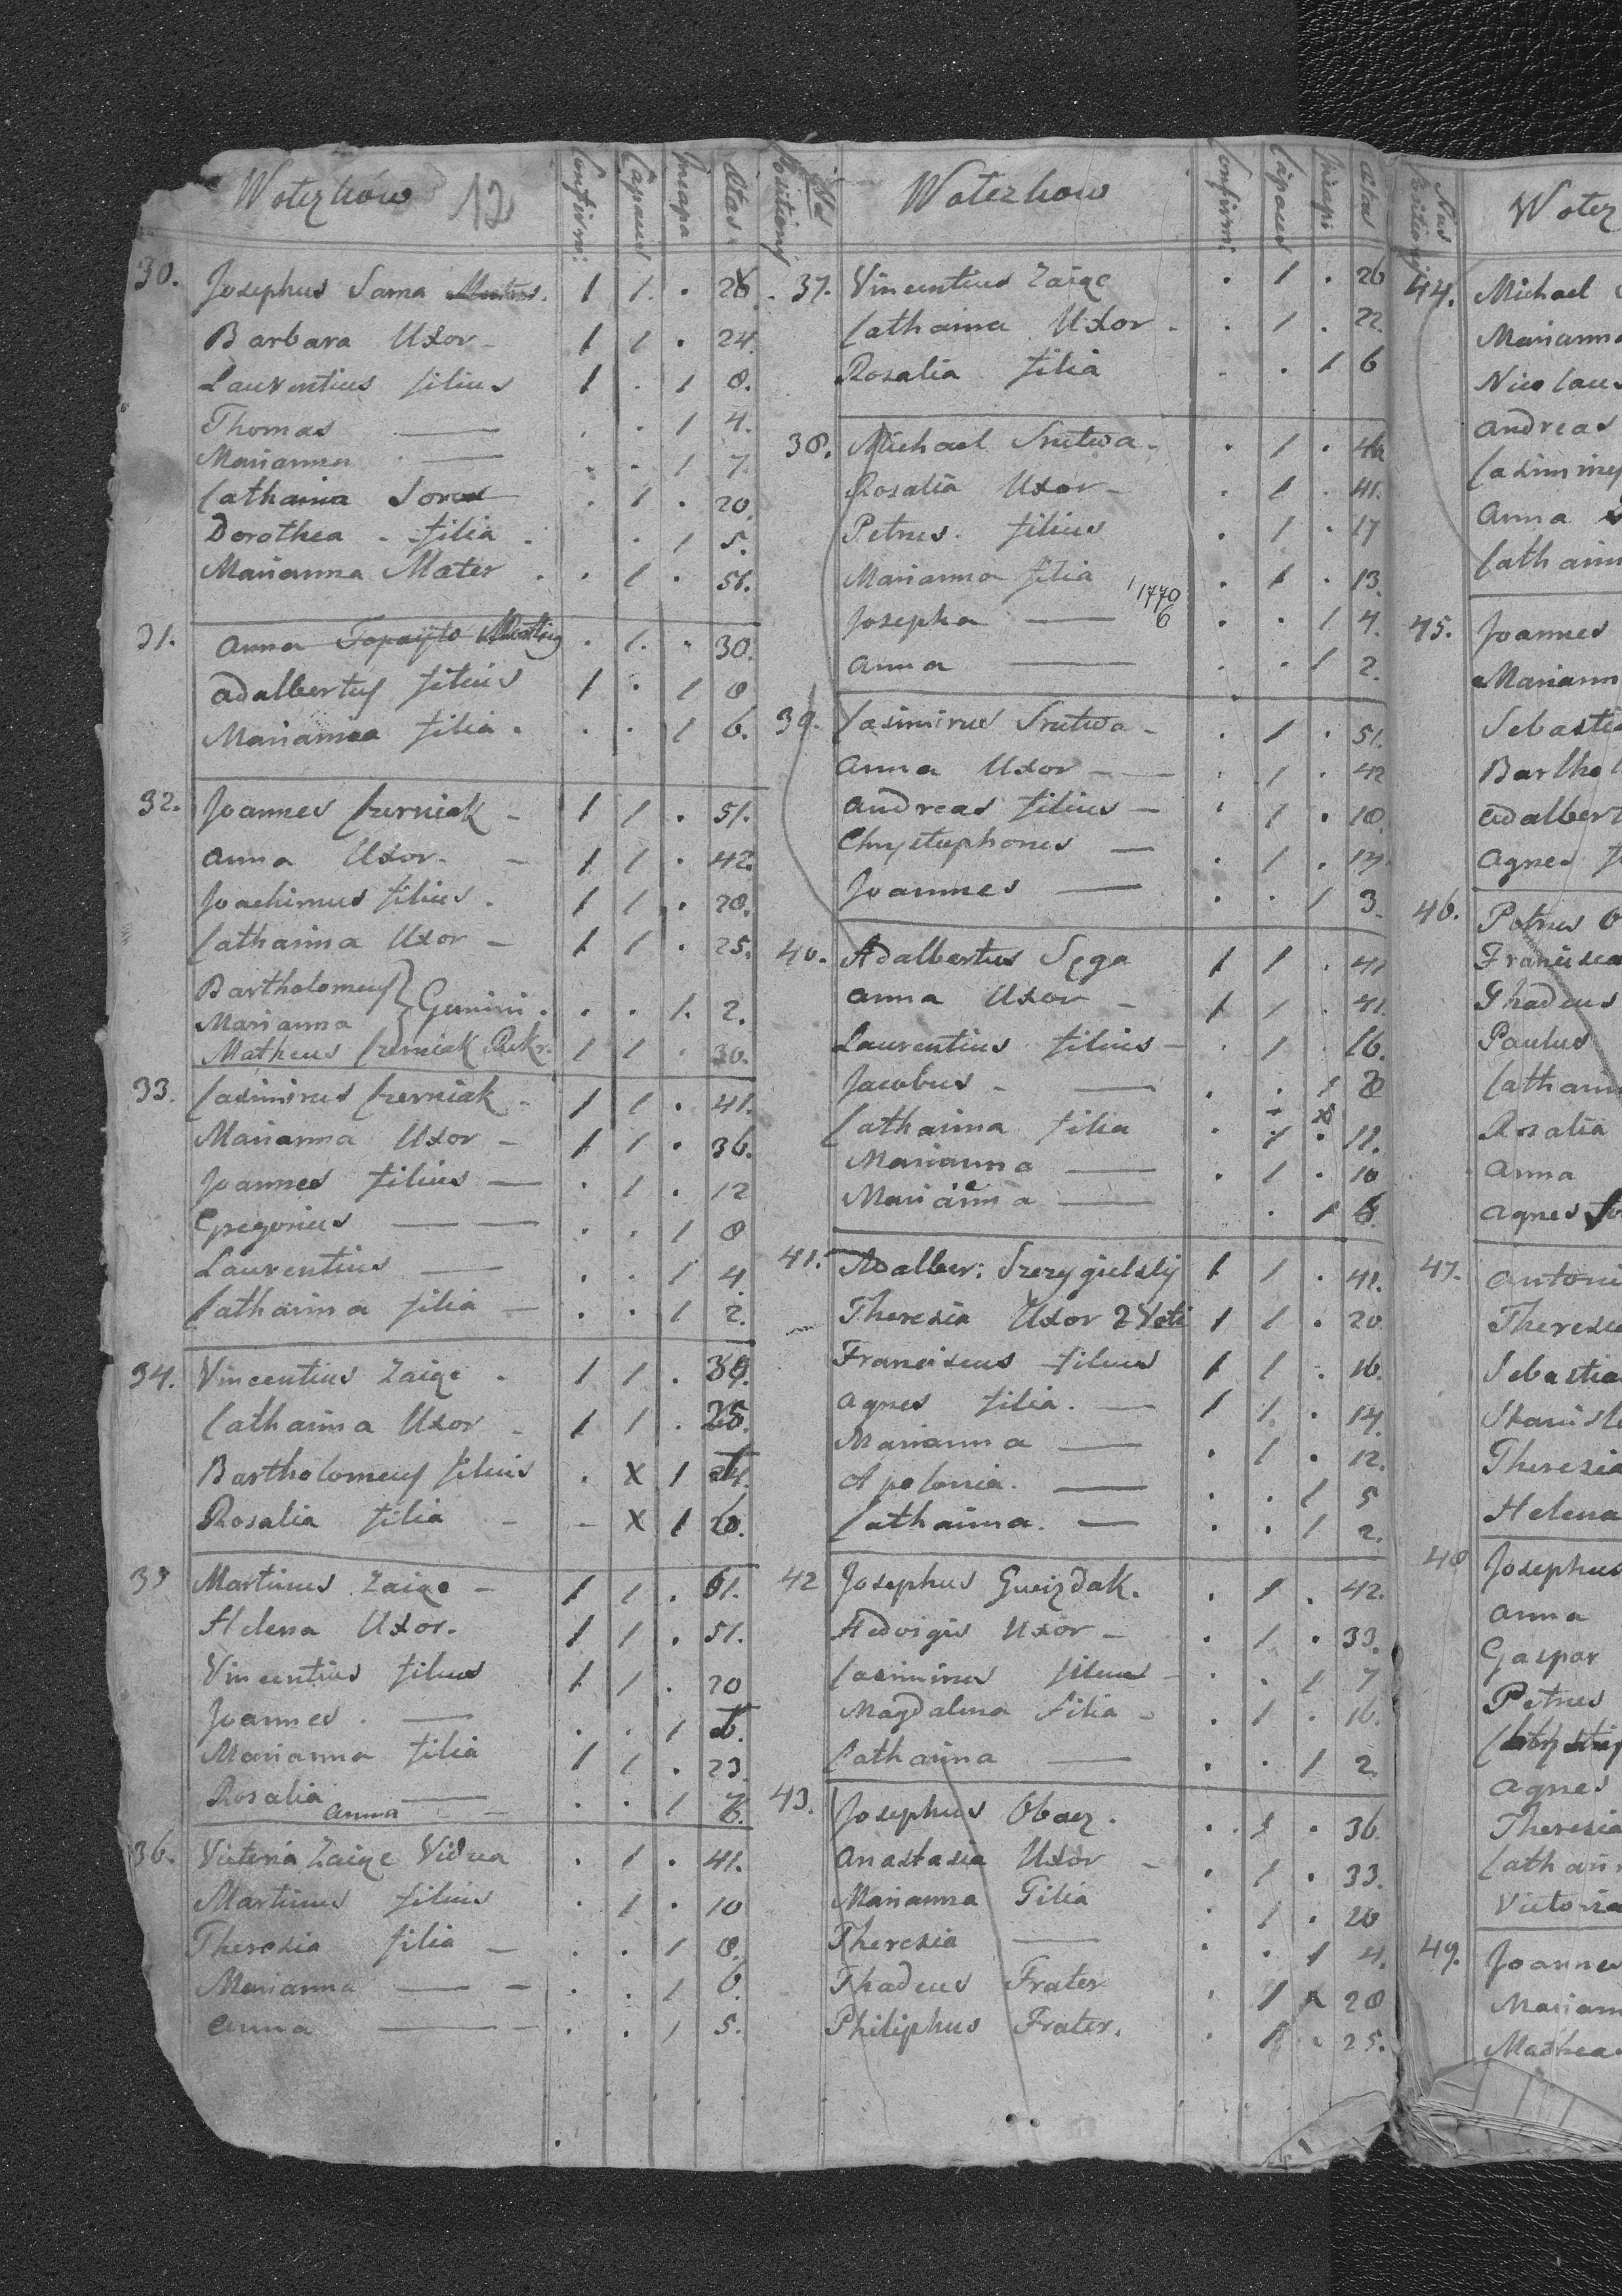 Wotezkow 12 Confirm: Capaces Incapa Aetas
30. Josephus Sama 1 1 . 26
Barbara Uxor - 1 1 . 24.
Laurentius filius 1 . 1 8.
Thomas — . . 1 4.
Marianna — . . 1 7.
Catharina Soror . 1 . 20.
Dorothea - filia . . 1 5.
Marianna Mater . . 1 . 51.
31. Anna . 1 . 30.
Adalbertus filius 1 . 1 8
Marianna filia . . . 1 6.
32. Joannes Czerniak - 1 1 . 51.
Anna Uxor - 1 1 . 42.
Joachimus filius . 1 1 . 28.
Catharina Uxor - 1 1 . 25.
Bartholomeus
Marianna } Gemini . . . 1. 2.
Matheus Czerniak Rekr. 1 1 . 30.
33. Casimirus Czerniak - 1 1 . 41.
Marianna Uxor - 1 1 . 36.
Joannes filius — . 1 . 12
Gregorius — — . . 1 8
Laurentius — . . 1 4.
Catharina filia — . . 1 2.
34. Vincentius Zaięc . 1 1 . 39.
Catharina Uxor - 1 1 .
Bartholomeus filius . X 1
Rosalia filia - - X 1
35 Martinus Zaięc - 1 1 . 61.
Helena Uxor. 1 1 . 51.
Vincentius filius 1 1 . 20
Joannes . — . . 1
Marianna filia 1 1 . 23.
Rosalia — . . 1
Anna
36. Victoria Zaięc Vidua . 1 . 41.
Martinus filius . 1 . 10
Theresia filia - . . 1 8.
Marianna — - . . 1 6.
Anna — . . 1 5.
Nus Positionis Wotezkow Confirm: Capaces Incapa: Aetas
37. Vincentius Zaięc . 1 . 26
Catharina Uxor - . 1 . 22.
Rosalia filia . . 1 6
38. Michael Srutwa - . 1 .
Rosalia Uxor - . 1 . 41.
Petrus. filius . 1 . 17
Marianna filia . 1 . 13.
1770
6
Josepha — . . 1 4.
Anna — . . 1 2.
39. Casimirus Srutwa - . 1 . 51.
Anna Uxor - — . 1 . 42
Andreas filius — . 1 . 18.
Chrystophorus — . 1 . 14.
Joannes — . . 1 3.
40. Adalbertus Sęga 1 1 . 41
Anna Uxor - 1 1 . 41.
Laurentius filius - . 1 . 16.
Jacobus - — . . 1
Catharina filia . 1 . 11.
Marianna — . 1 . 10
Marianna — . 1 6.
41. Adalber: Szczygielsky 1 1 . 41.
Theresia Uxor 2 Voti 1 1 . 20
Franciscus filius 1 1 . 16.
Agnes filia. — 1 1 . 14.
Marianna — . 1 . 12.
Apolonia. — . . 1 5
Catharina. — . . 1 2.
42 Josephus Gwizdak. . 1 . 42.
Hedvigis Uxor - . 1 . 33.
Casimirus filius - . . 1 7
Magdalena filia - . 1 . 16.
Catharina — . . 1 2.
43. Josephus Obacz . . 1 . 36.
Anastasia Uxor - . 1 . 33.
Marianna Filia . 1 . 20
Theresia — . . 1 4.
Thadeus Frater . 1 28
Philiphus Frater. . 1 . 25.
Nus Positionis Wotez
44. Michael
Marianna
Nicolaus
Andreas
Casimirus
Anna
Catharin
45. Joannes
Mariann
Sebastia
Barthol
Adalbert
Agnes f
46. Petrus O
Francisca
Thadeus
Paulus
Catharin
Rosalia
Anna
Agnes So
47. Antoni
Theresia
Sebastia
Stanisl
Theresia
Helena
48 Josephus
Anna
Gaspar
Petrus
Agnes
Theresia
Catharin
Victoria
49. Joannes
Mariann
Mathea